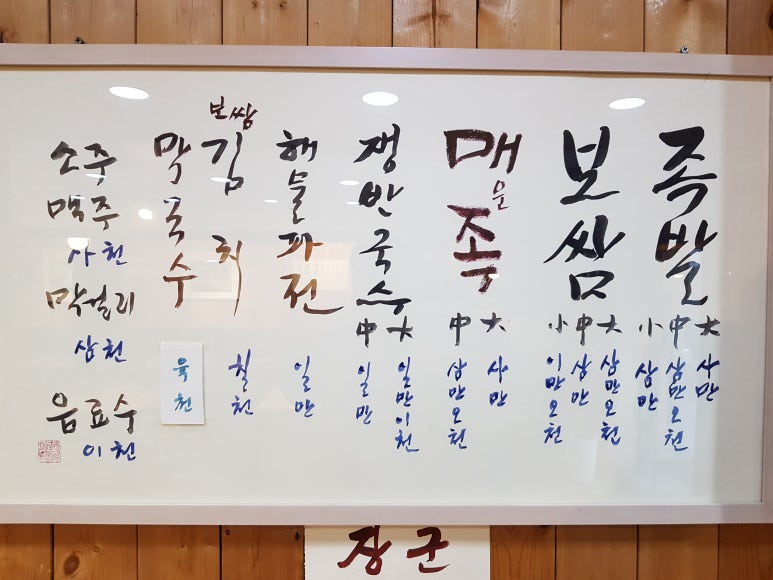 족발
大 사만
中 삼만오천
小 삼만
보쌈
大 삼만오천
中 삼만
小 이만오천
매운족
大 사만
中 삼만오천
쟁반국수
大 일만이천
中 일만
해물파전
일만
보쌈
김치
칠천
막국수
육천
소주
맥주
사천
막걸리
삼천
음료수
이천
장군